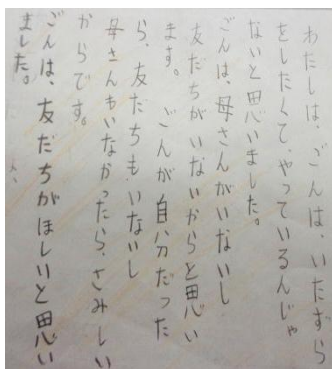 わたしは、いたずら
をしたくて、やっているんじゃ
ないと思いました。
ごんは、母さんがいないし
友だちがいないからと思い
ます。 ごんが自分だった
ら、友だちもいないし
母さんもいなかったら、さみしい
からです。
ごんは、友だちがほしいと思い
ました。